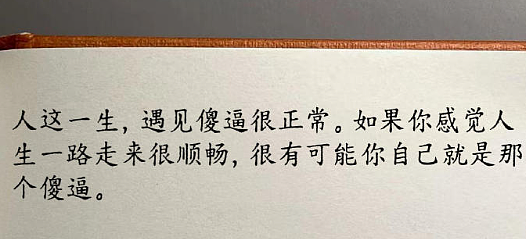 人这一生，遇见傻逼很正常。如果你感觉人
生一路走来很顺畅，很有可能你自己就是那
个傻逼。